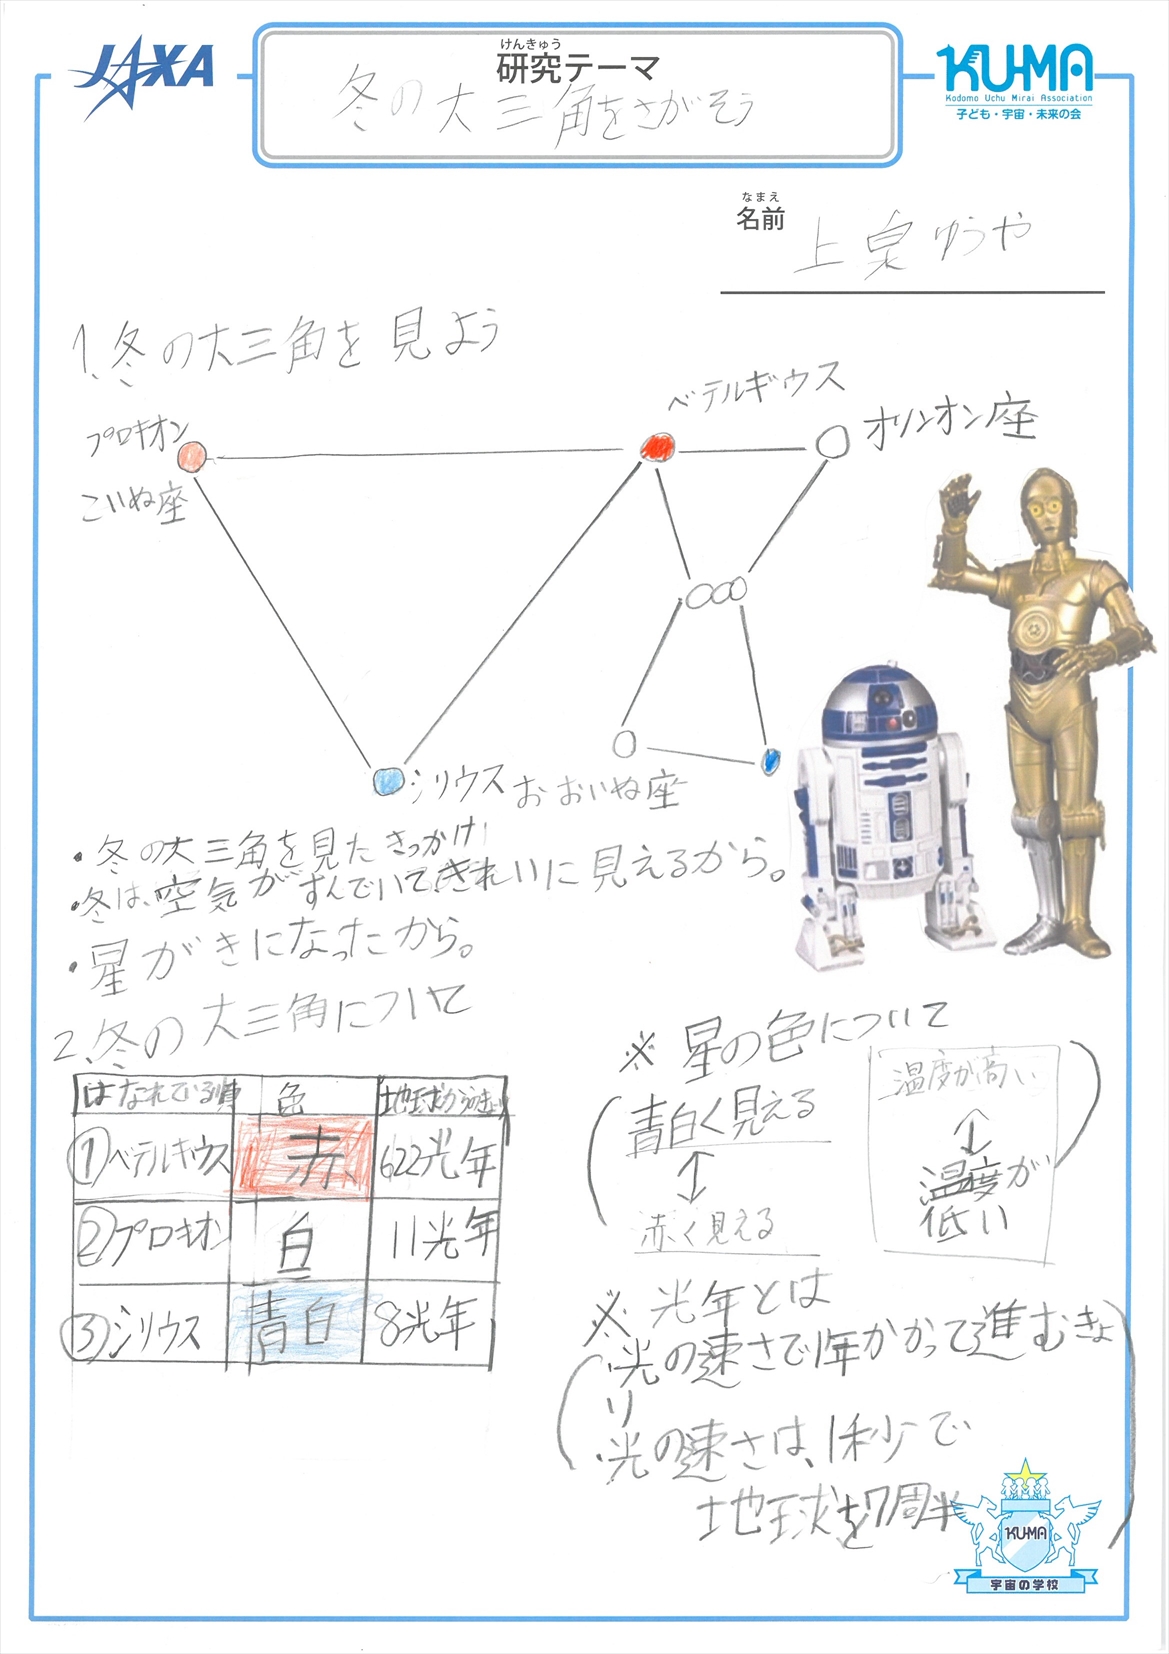 JAXA
けんきゅう
研究テーマ
冬の大三角をさがそう
KU-MA
Kodomo Uchu Mirai Association
子ども・宇宙・未来の会
なまえ
名前
上泉ゆうや
1、冬の大三角を見よう
プロキオン
こいぬ座
ベテルギウス
オリンオン座
シリウス おおいぬ座
・冬の大三角を見たきっかけ
・冬は、空気がすんでいて、きれいに見えるから。
・星がきになったから。
2、冬の大三角について
はなれている順 色 地球からのきょり
①ベテルギウス 赤 622光年
②プロキオン 白 11光年
③シリウス 青白 8光年
※星の色について
青白く見える
↕
赤く見える
温度が高い
↕
温度が
低い
※光年とは
・光の速さで1年かかって進むきょ
り
・光の速さは、1秒で
地球を7周半
KU-MA
宇宙の学校